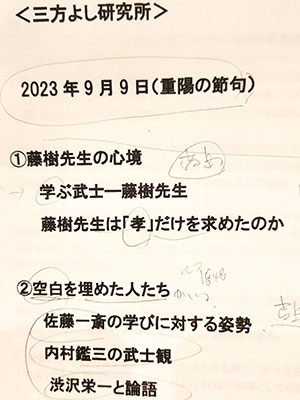 ＜三方よし研究所＞
2023年9月9日(重陽の節句)
①藤樹先生の心境
学ぶ武士―藤樹先生
藤樹先生は「孝」だけを求めたのか
②空白を埋めた人たち
佐藤一斎の学びに対する姿勢
内村鑑三の武士観
渋沢栄一と論語